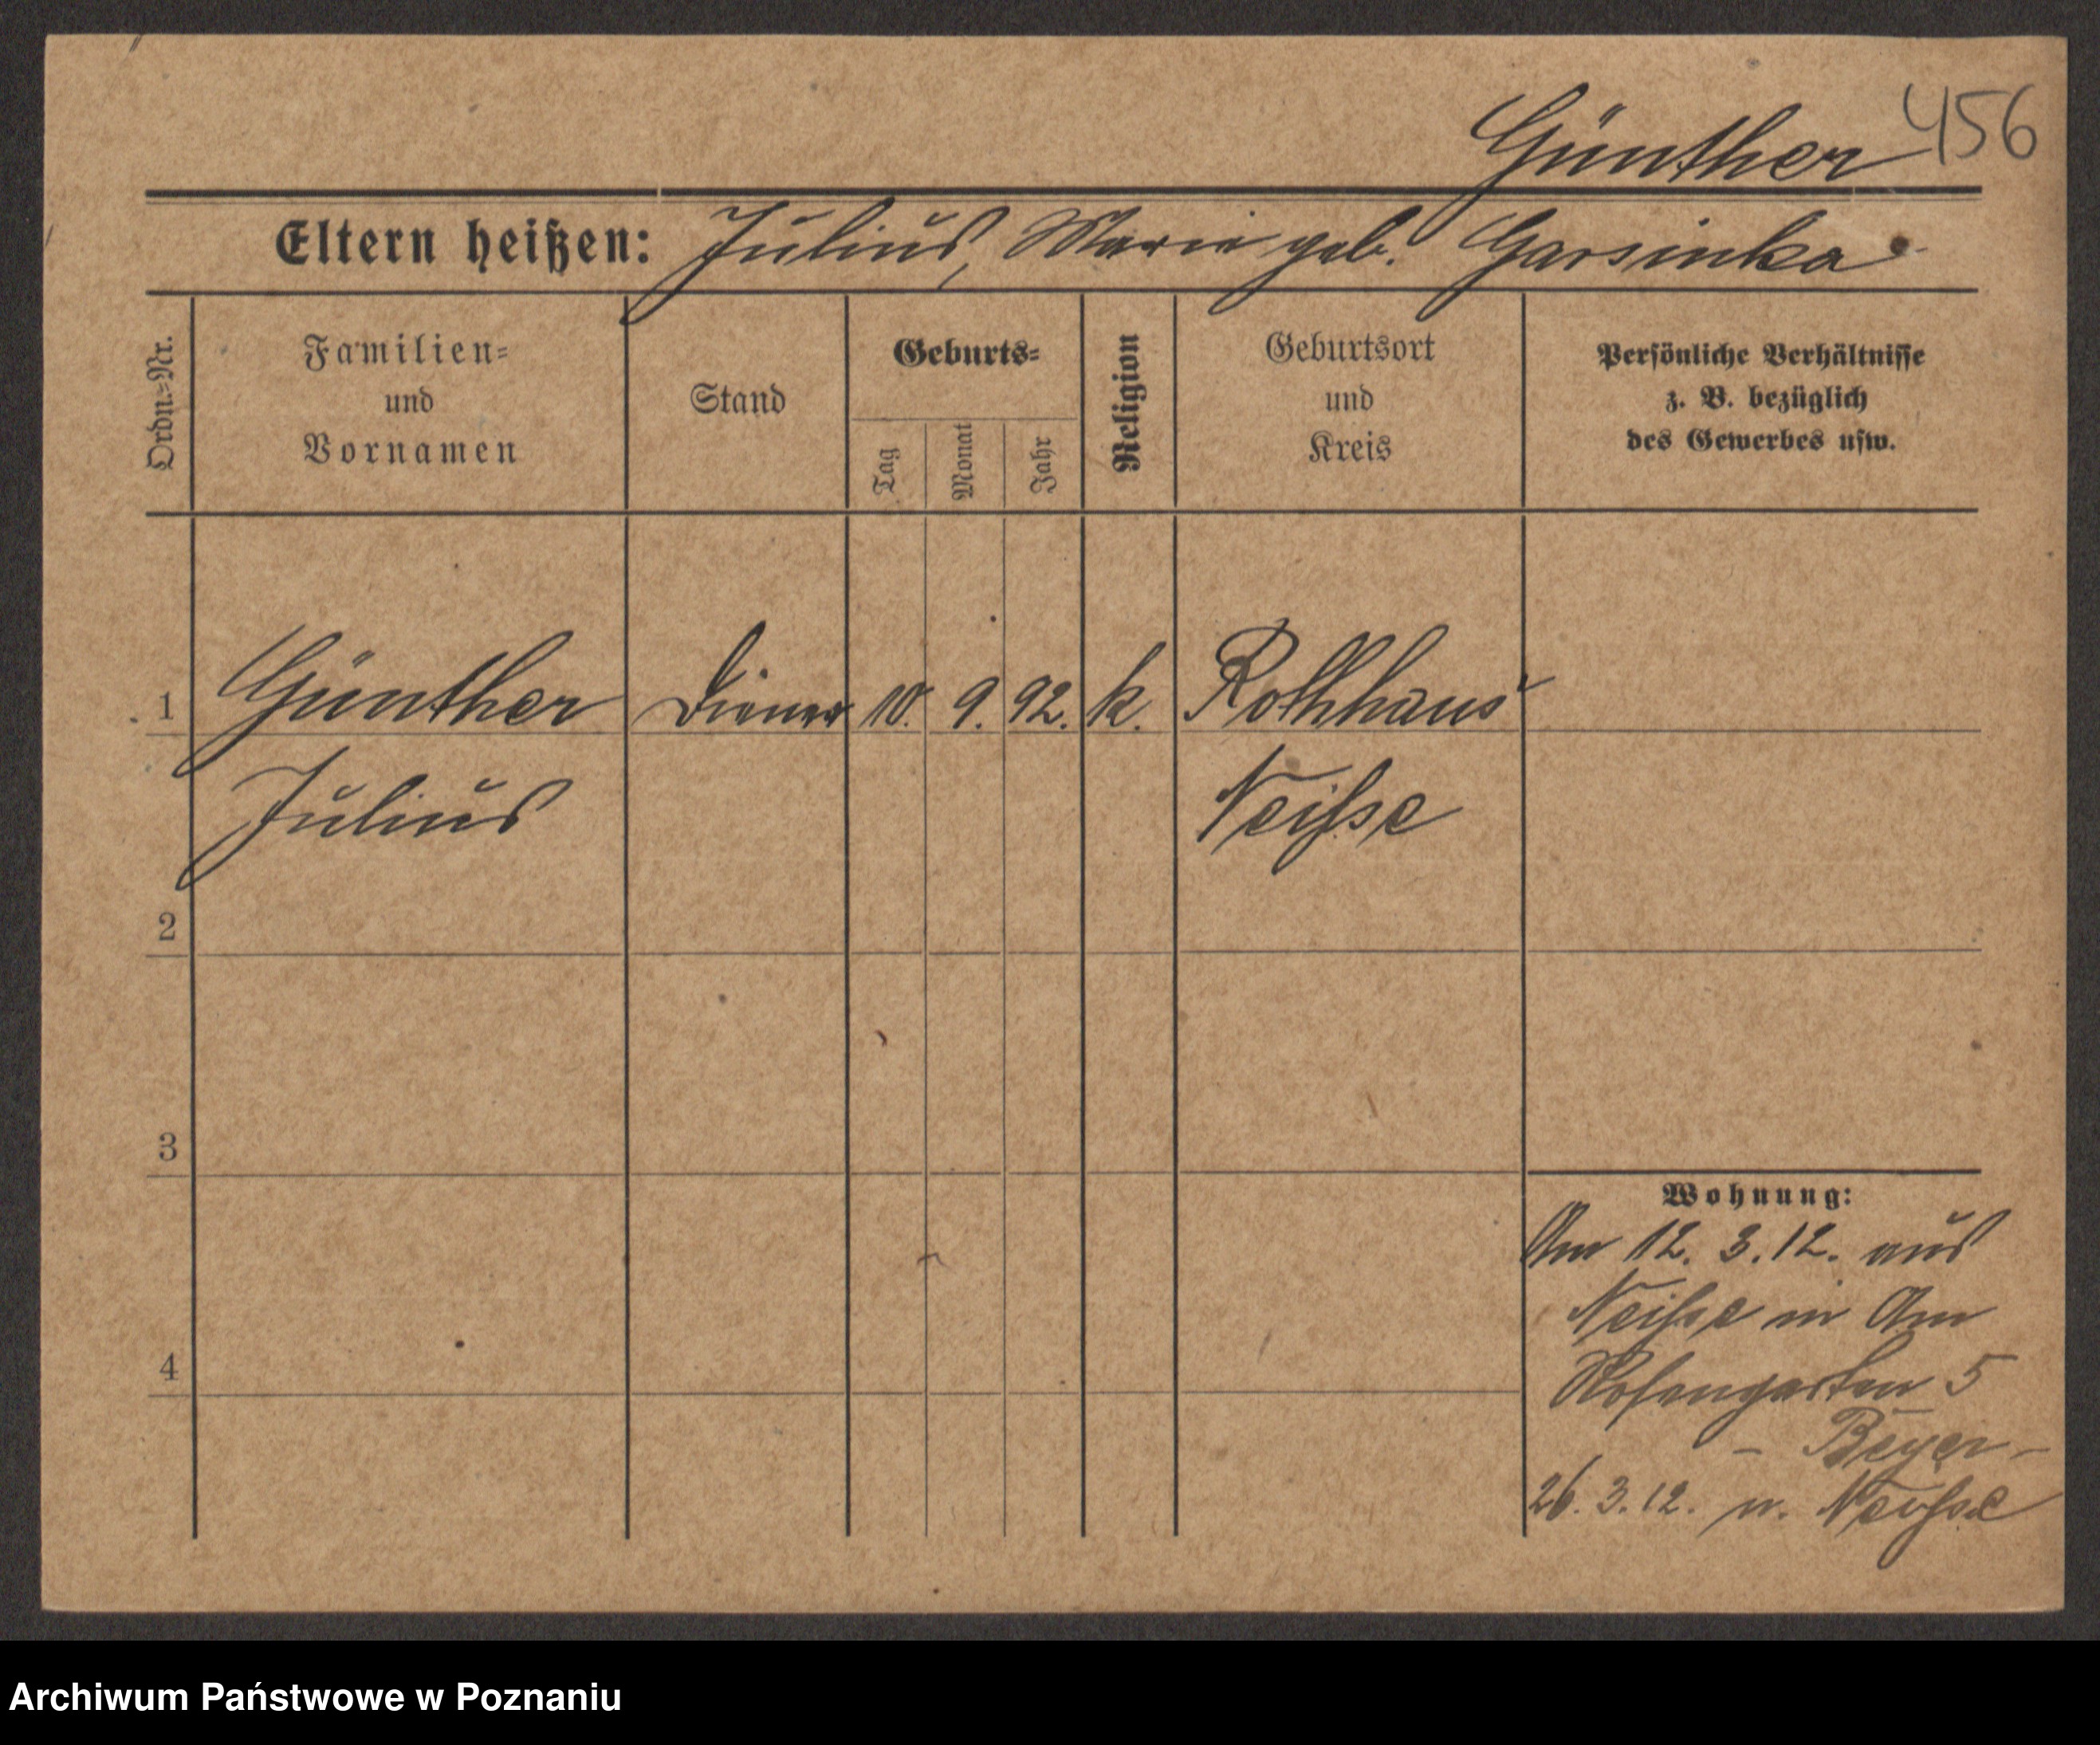 Günther 456
Eltern heißen: Julius, Marie geb. Garsinka
Ordn.=Nr.
Familien=
und
Vornamen
Stand
Geburts=
Tag
Monat
Jahr
Religion
Geburtsort
und
Kreis
Persönliche Verhältnisse
z. B. bezüglich
des Gewerbes usw.
1 Günther Diener 10. 9. 92. k. Rothhaus
Julius Neisse
2
3
4
Wohnung:
Am 12. 3. 12. aus
Neisse in Am
Rosengarten 5
– Beyer –
26. 3. 12. n. Neisse
Archiwum Państwowe w Poznaniu